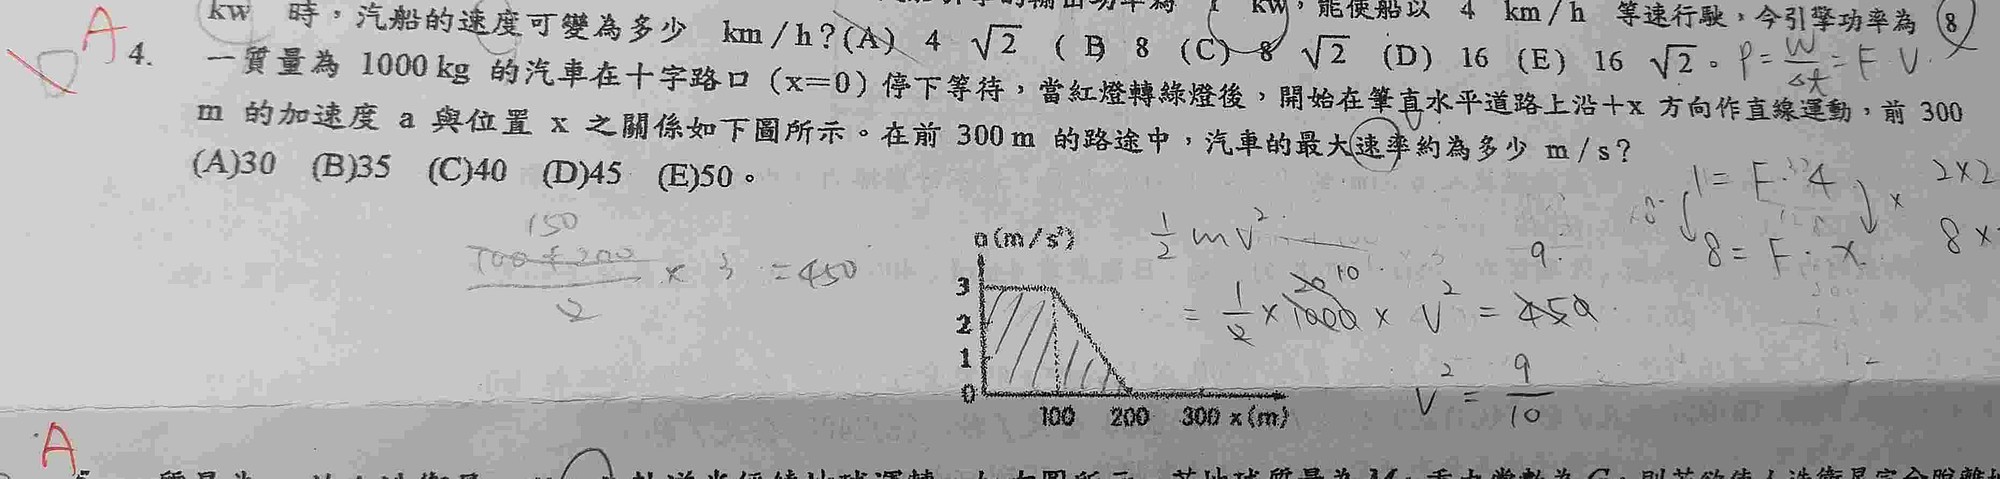 kw 時，汽船的速度可變為多少 km/h?(A) 4 √2 (B) 8 (C) 8 √2 (D) 16 (E) 16 √2 。
能使船以 4 km/h 等速行駛，今引擎功率為 8
P = W/Δt = F·V
A
4. 一質量為 1000 kg 的汽車在十字路口（x=0）停下等待，當紅燈轉綠燈後，開始在筆直水平道路上沿+x 方向作直線運動，前 300
m 的加速度 a 與位置 x 之關係如下圖所示。在前 300 m 的路途中，汽車的最大速率約為多少 m/s？
(A)30 (B)35 (C)40 (D)45 (E)50。
1 = F · 4
8 = F · x
2×2
8×
150
(100+200)/2 × 3 = 450
a(m/s²)
3
2
1
0
100 200 300 x(m)
½ mv²
10
9
= ½ × 1000 × V² = 450
V² = 9/10
A